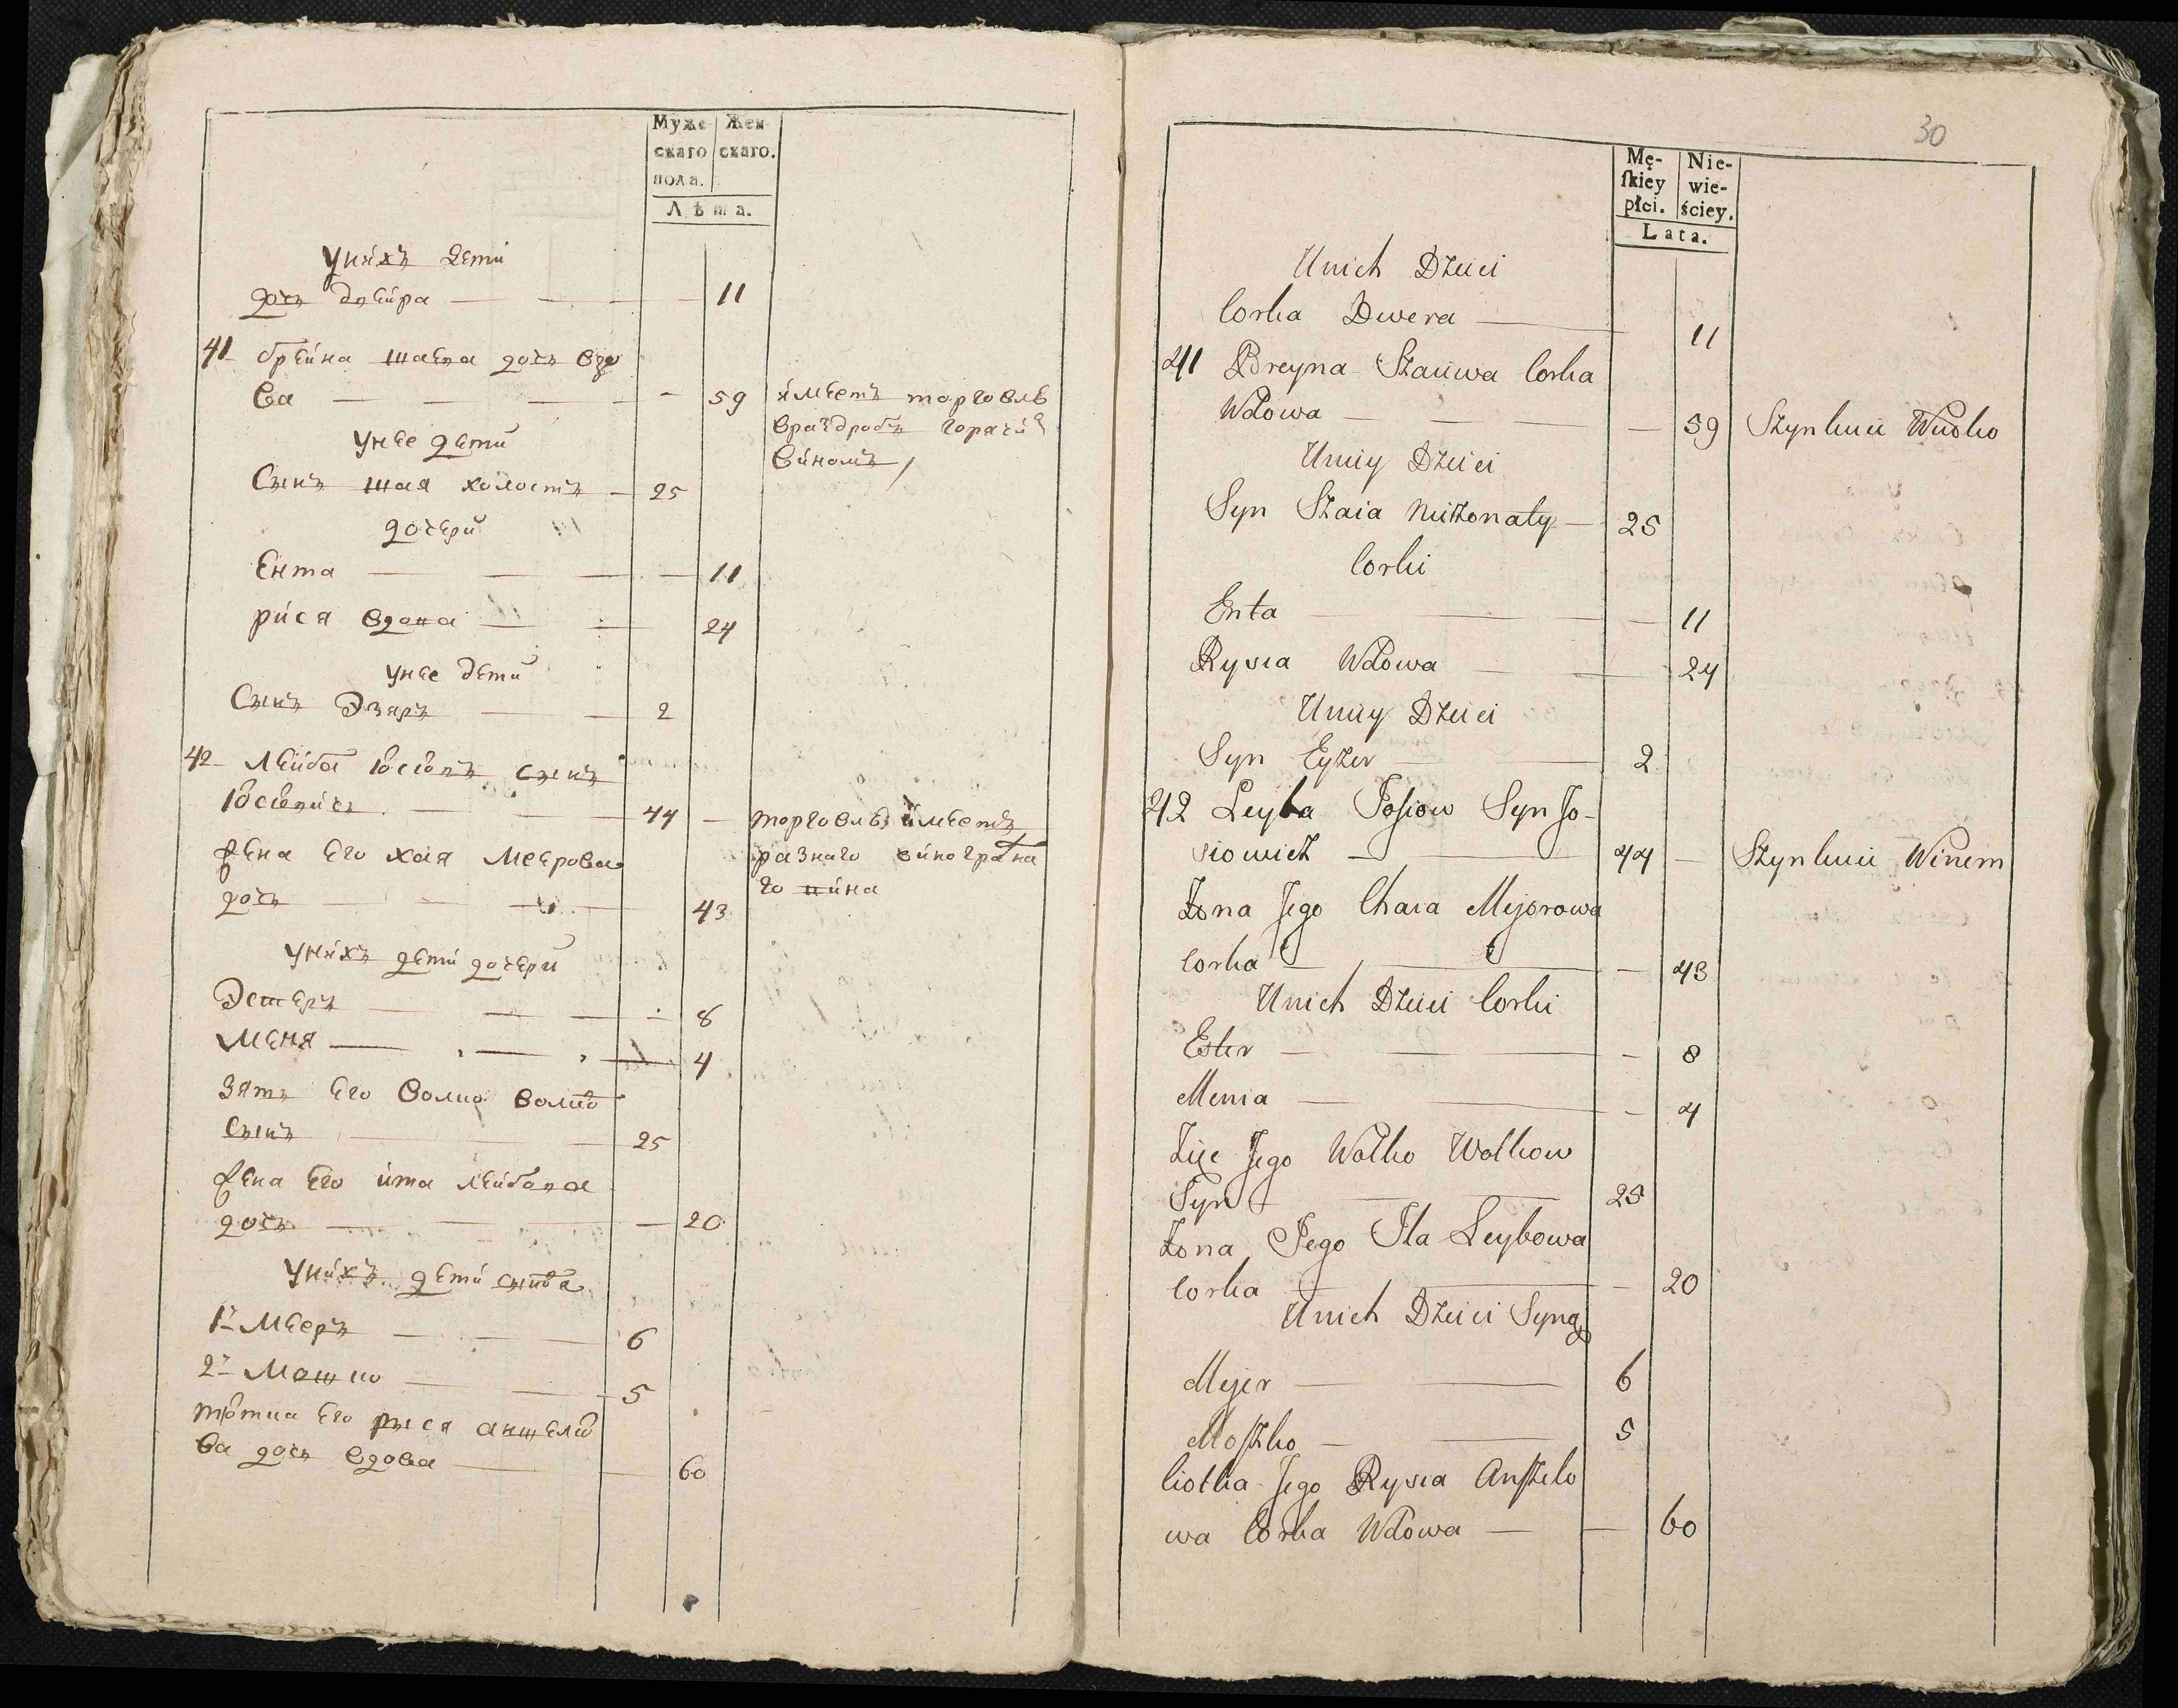 Муже Жен
скаго скаго.
пола.
Лѣта.
Унихъ дети
дочь двейра — — — 11
41 брейна шаева дочь вдо
ва — — — 59 имеетъ торговлѣ
враздробъ горячи
виномъ
Унее дети
Сынъ шая холостъ — 25
дочери
Ента — — — 11
риса вдова — — 24
унее дети
Сынъ Эзаръ — — 2
42 Лейба Іосіовъ сынъ
Іосіовичъ — — 44 — торговлѣ имеетъ
жена его хая меерова разнаго виноградна
дочь — — — 43 го вина
унихъ дети дочери
Эстеръ — — — 8
Меня — — — 4
Зять его Волко Волко
Сынъ — — 25
жена его ита лейбова
дочь — — — 20
унихъ дети сынова
1й Мееръ — — 6
2й Мошко — — 5
тіотка его рыся аншело
ва дочь вдова — — 60
30
Mę- Nie-
skiey wie-
płci. ściey.
Lata.
Unich Dzieci
Corka Dwera — 11
41 Breyna Szaiiwa Corka
Wdowa — — — 59 Szynkuie Wudko
Uniiy Dzieci
Syn Szaia Nieżonaty — 25
Corki
Enta — — — 11
Rysia Wdowa — — 24
Uniiy Dzieci
Syn Eyzer — — 2
42 Leyba Josiow Syn Jo-
siowicz — — 44 — Szynkuie Winem
Żona Jego Chaia Mejorowa
Corka — — — 43
Unich Dzieci Corki
Ester — — — 8
Menia — — — 4
Zięć Jego Wolko Wolkow
Syn — — 25
Żona Jego Ita Leybowa
Corka — — — 20
Unich Dzieci Syny
Mejer — — 6
Moszko — — 5
Ciotka Jego Rysia Anszelo
wa Corka Wdowa — — 60